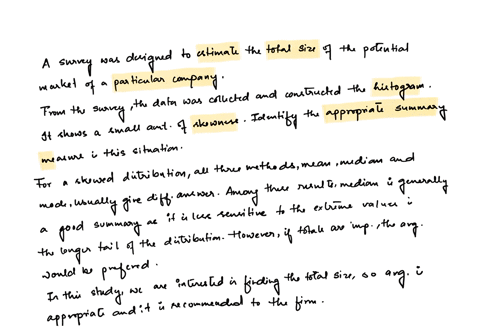 A survey was designed to estimate the total size of the potential
market of a particular company.
From the survey, the data was collected and constructed the histogram.
It shows a small amt. of skewness. Identify the appropriate summary
measure in this situation.
For a skewed distribution, all three methods, mean, median and
mode, usually give diff. answer. Among three results, median is generally
a good summary as it is less sensitive to the extreme values in
the longer tail of the distribution. However, if totals are imp., the avg.
would be preferred.
In this study, we are interested in finding the total size, so avg. is
appropriate and it is recommended to the firm.